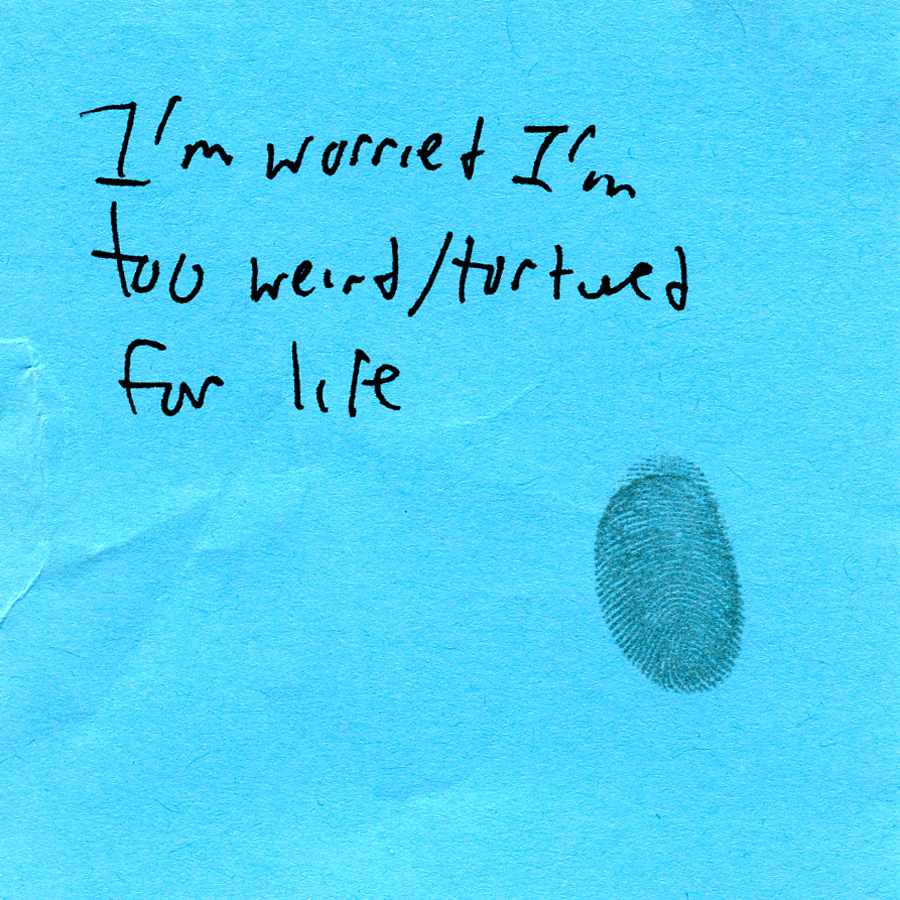 I'm worried I'm
too weird/tortured
for life